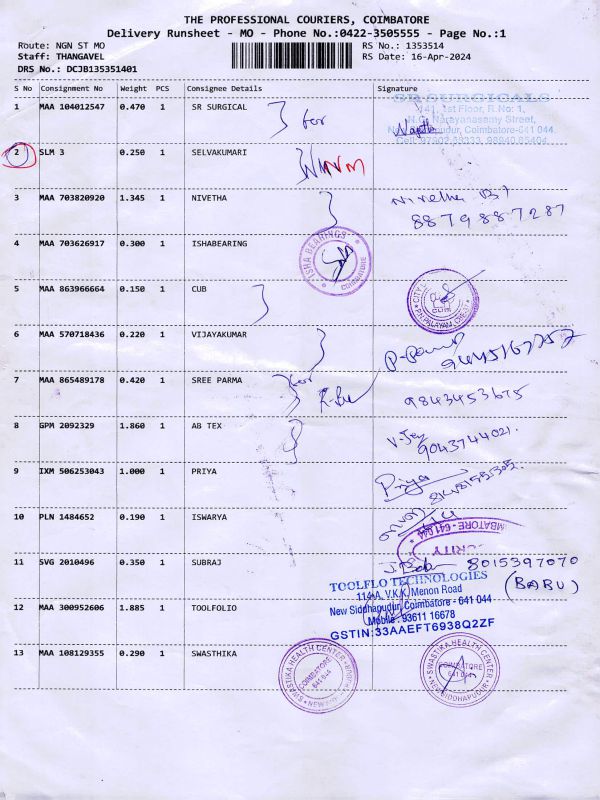 THE PROFESSIONAL COURIERS, COIMBATORE
Delivery Runsheet - MO - Phone No.:0422-3505555 - Page No.:1
Route: NGN ST MO
Staff: THANGAVEL
DRS No.: DCJB135351401
RS No.: 1353514
RS Date: 16-Apr-2024
S No Consignment No Weight PCS Consignee Details Signature
1 MAA 104012547 0.470 1 SR SURGICAL
for
SR SURGICALS
141, 1st Floor, R.No: 1,
N.G. Narayanasamy Street,
New Siddhapudur, Coimbatore-641 044.
2 SLM 3 0.250 1 SELVAKUMARI
3 MAA 703820920 1.345 1 NIVETHA
Nivetha B1
8879887287
4 MAA 703626917 0.300 1 ISHABEARING
ISHA BEARINGS
COIMBATORE
5 MAA 863966664 0.150 1 CUB
CITY
P.N. PALAYAM
6 MAA 570718436 0.220 1 VIJAYAKUMAR
7 MAA 865489178 0.420 1 SREE PARMA
for
9843453675
8 GPM 2092329 1.860 1 AB TEX
V-Jey
9043744021.
9 IXM 506253043 1.000 1 PRIYA
Priya
10 PLN 1484652 0.190 1 ISWARYA
COIMBATORE - 641 044
11 SVG 2010496 0.350 1 SUBRAJ
8015397070
(BABU)
12 MAA 300952606 1.885 1 TOOLFOLIO
TOOLFLO TECHNOLOGIES
114-A, V.K.K. Menon Road
New Siddhapudur, Coimbatore - 641 044
Mobile : 93611 16678
GSTIN:33AAEFT6938Q2ZF
13 MAA 108129355 0.290 1 SWASTHIKA
SWASTIKA HEALTH CENTER
COIMBATORE
641 044
SWASTIKA HEALTH CENTER
COIMBATORE
641 044
NEW SIDDHAPUDUR